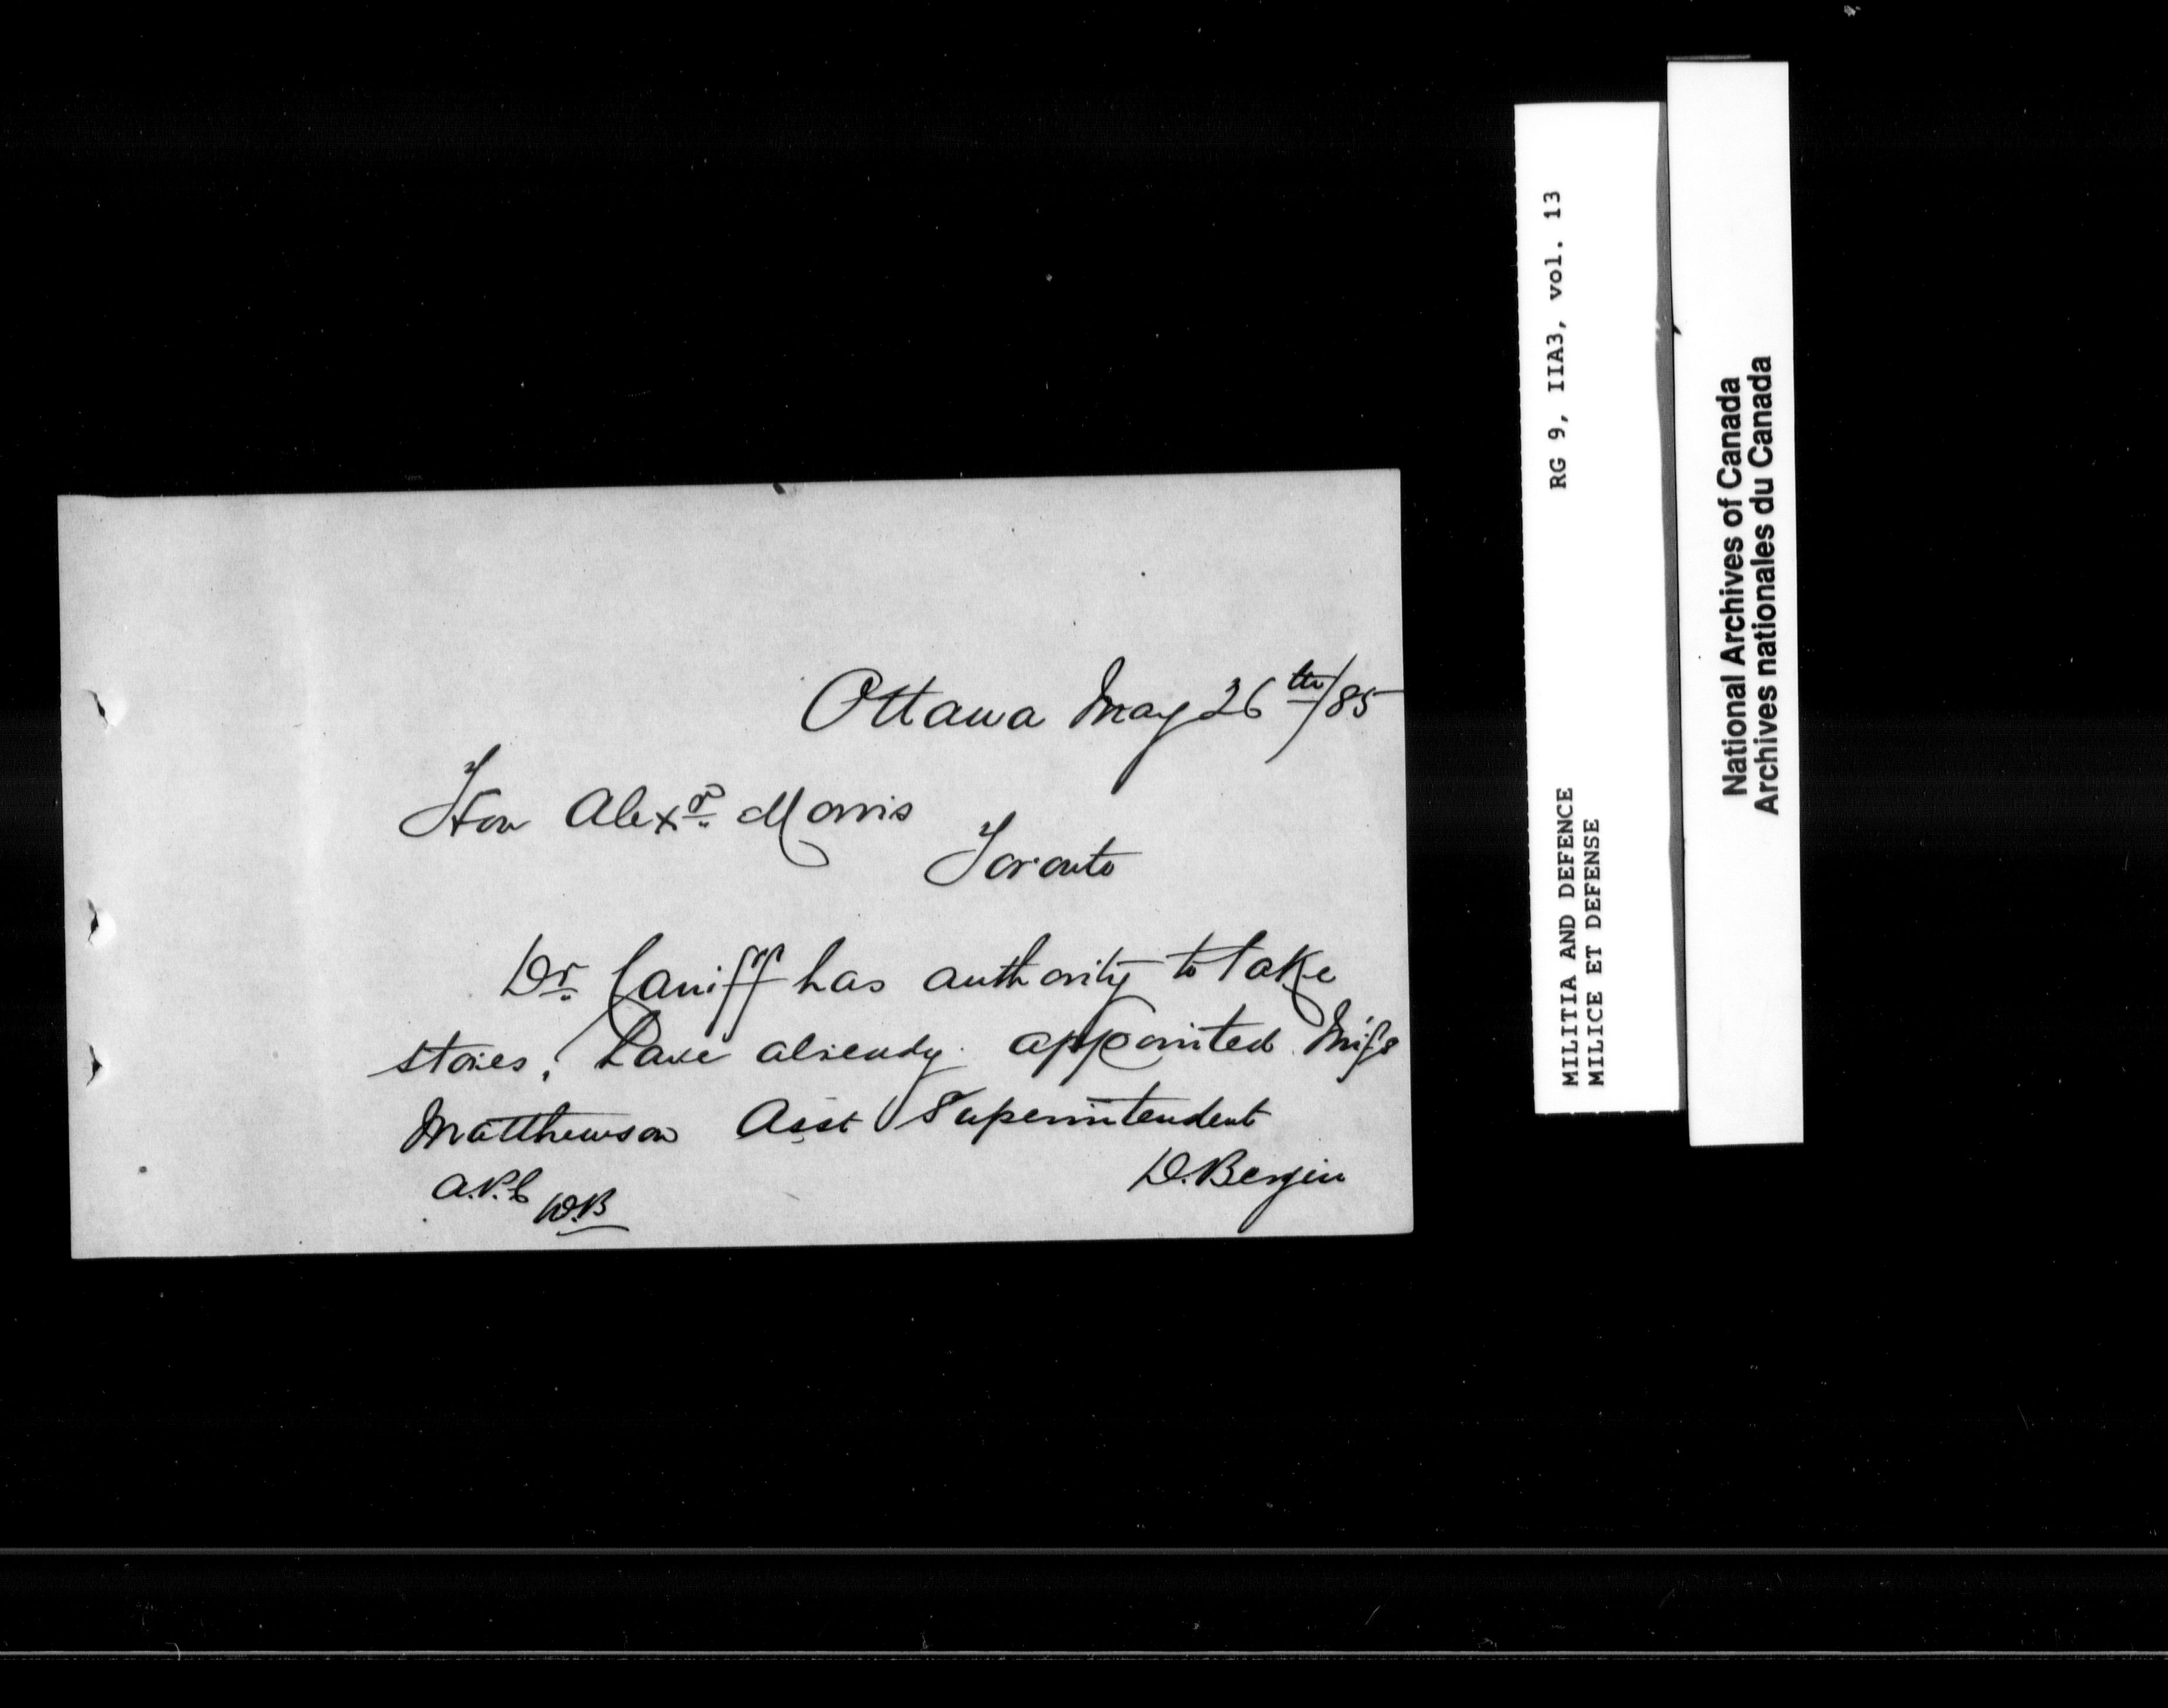 Ottawa May 26th/85
Hon Alexr. Morris
Toronto
Dr. Caniff has authority to take
stores, have already appointed Miss
Matthewson Asst Superintendent
D. Bergin
W.B
RG 9, IIA3, vol. 13
MILITIA AND DEFENCE
MILICE ET DEFENSE
National Archives of Canada
Archives nationales du Canada